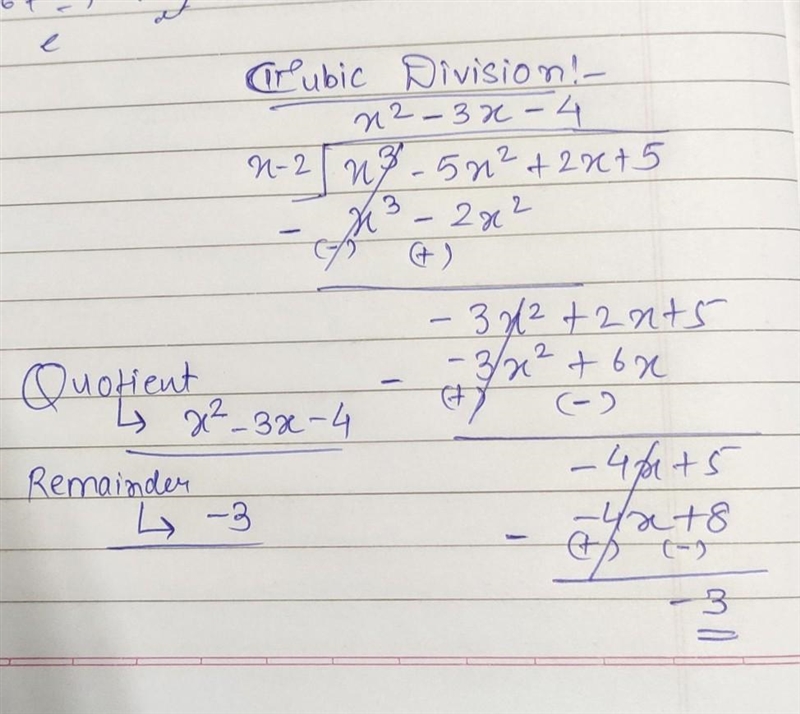 e
Cubic Division:-
x² - 3x - 4
x-2 x³ - 5x² + 2x + 5
- x³ - 2x²
(-) (+)
- 3x² + 2x + 5
- -3x² + 6x
(+) (-)
Quotient
↳ x² - 3x - 4
- 4x + 5
Remainder
↳ -3
- -4x + 8
(+) (-)
- 3